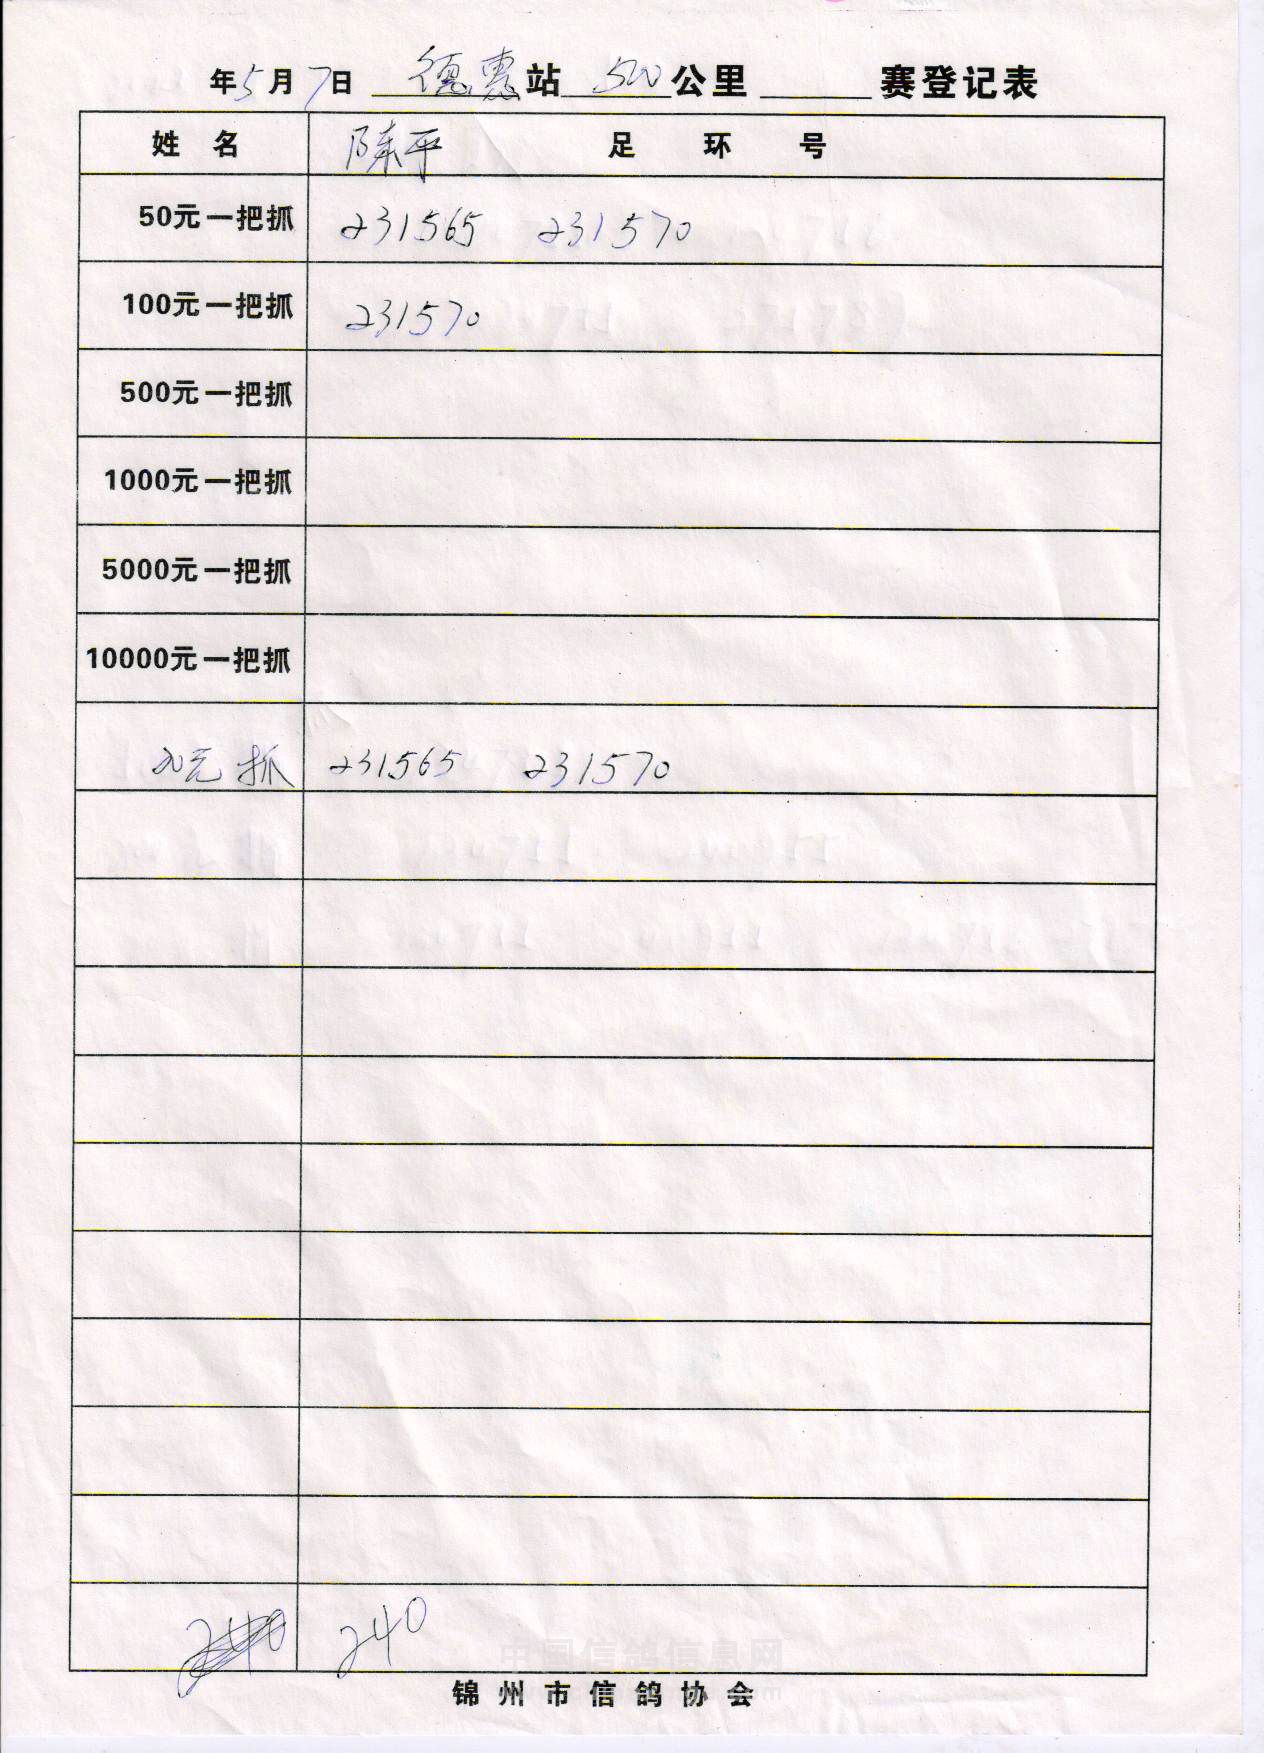 年5月7日 德惠站 500公里 赛登记表
姓 名 陈平 足 环 号
50元一把抓 231565 231570
100元一把抓 231570
500元一把抓
1000元一把抓
5000元一把抓
10000元一把抓
20元抓 231565 231570
240 240
中国信鸽信息网
锦州市信鸽协会